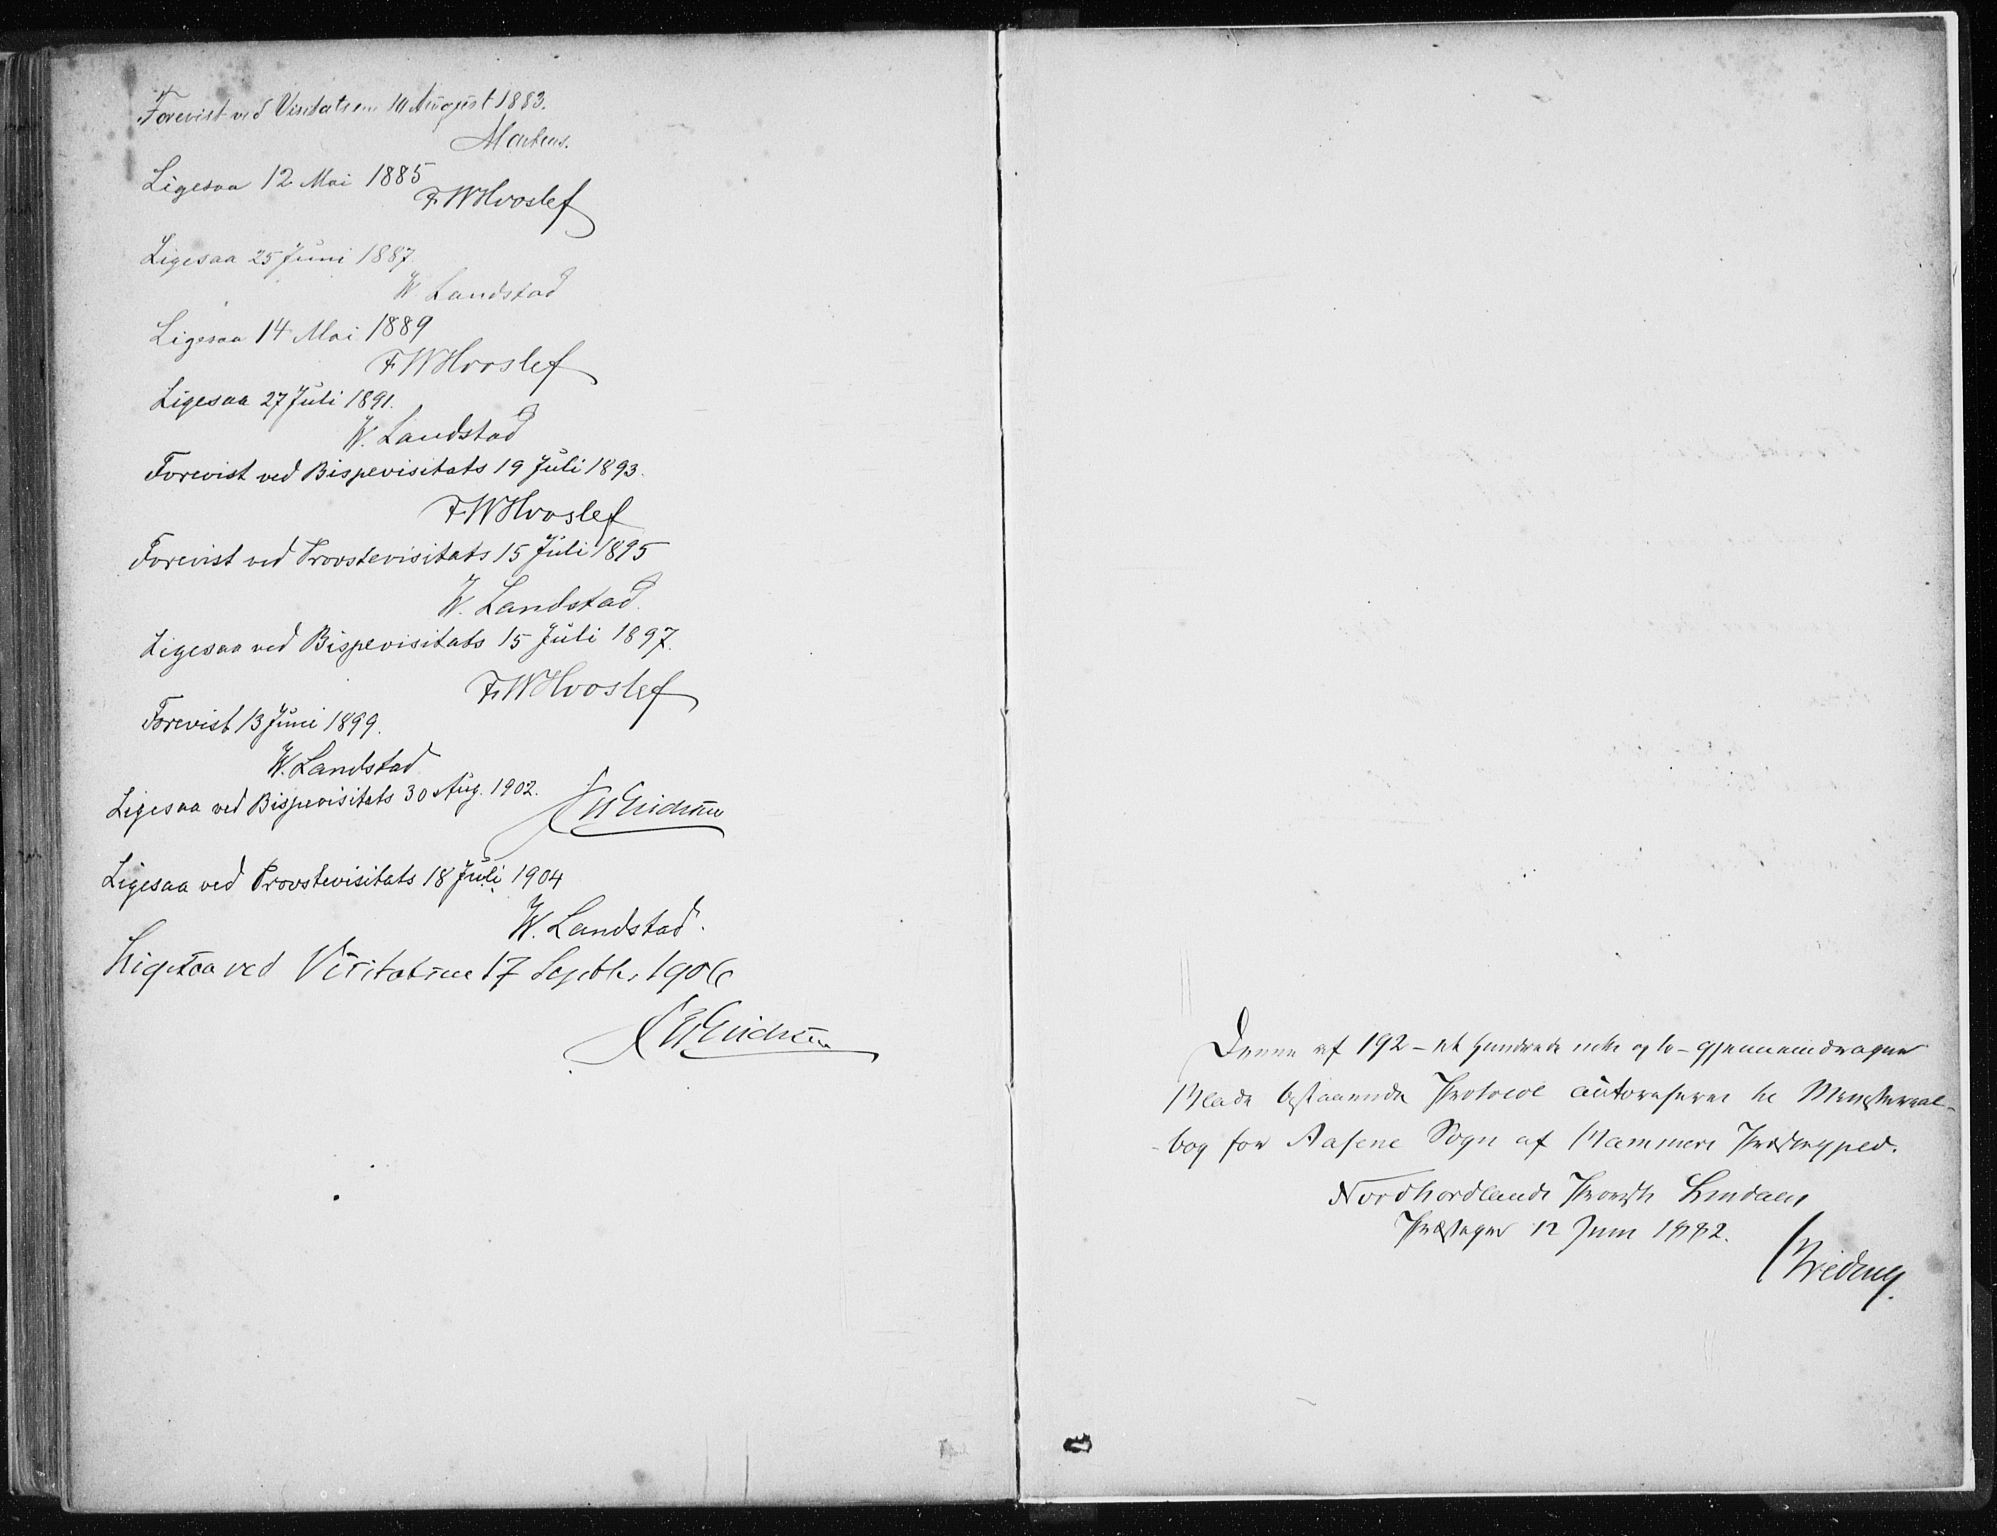 Forevist ved Visitatsen 10 August 1883.
Martens.
Ligesaa 12 Mai 1885
F. W Hvoslef
Ligesaa 25 Juni 1887.
W Landstad
Ligesaa 14 Mai 1889
F. W Hvoslef
Ligesaa 27 Juli 1891.
W. Landstad
Forevist ved Bispevisitats 19 Juli 1893.
F. W Hvoslef
Forevist ved Provstevisitats 15 Juli 1895
W. Landstad.
Ligesaa ved Bispevisitats 15 Juli 1897.
F. W Hvoslef
Forevist 13 Juni 1899.
W. Landstad
Ligesaa ved Bispevisitats 30 Aug. 1902.
Ligesaa ved Provstevisitats 18 Juli 1904
W. Landstad.
Ligesaa ved Visitatsen 17 Septbr. 1906
Denne af 192 – et hundrede niti og to – gjennemdragne
Blade bestaaende Protocol autoriseres til Ministerial-
bog for Aasene Sogn af Hammers Præstegjeld.
Nordhordlands Provsti Lindaas
Præstegd 12 Juni 1882.